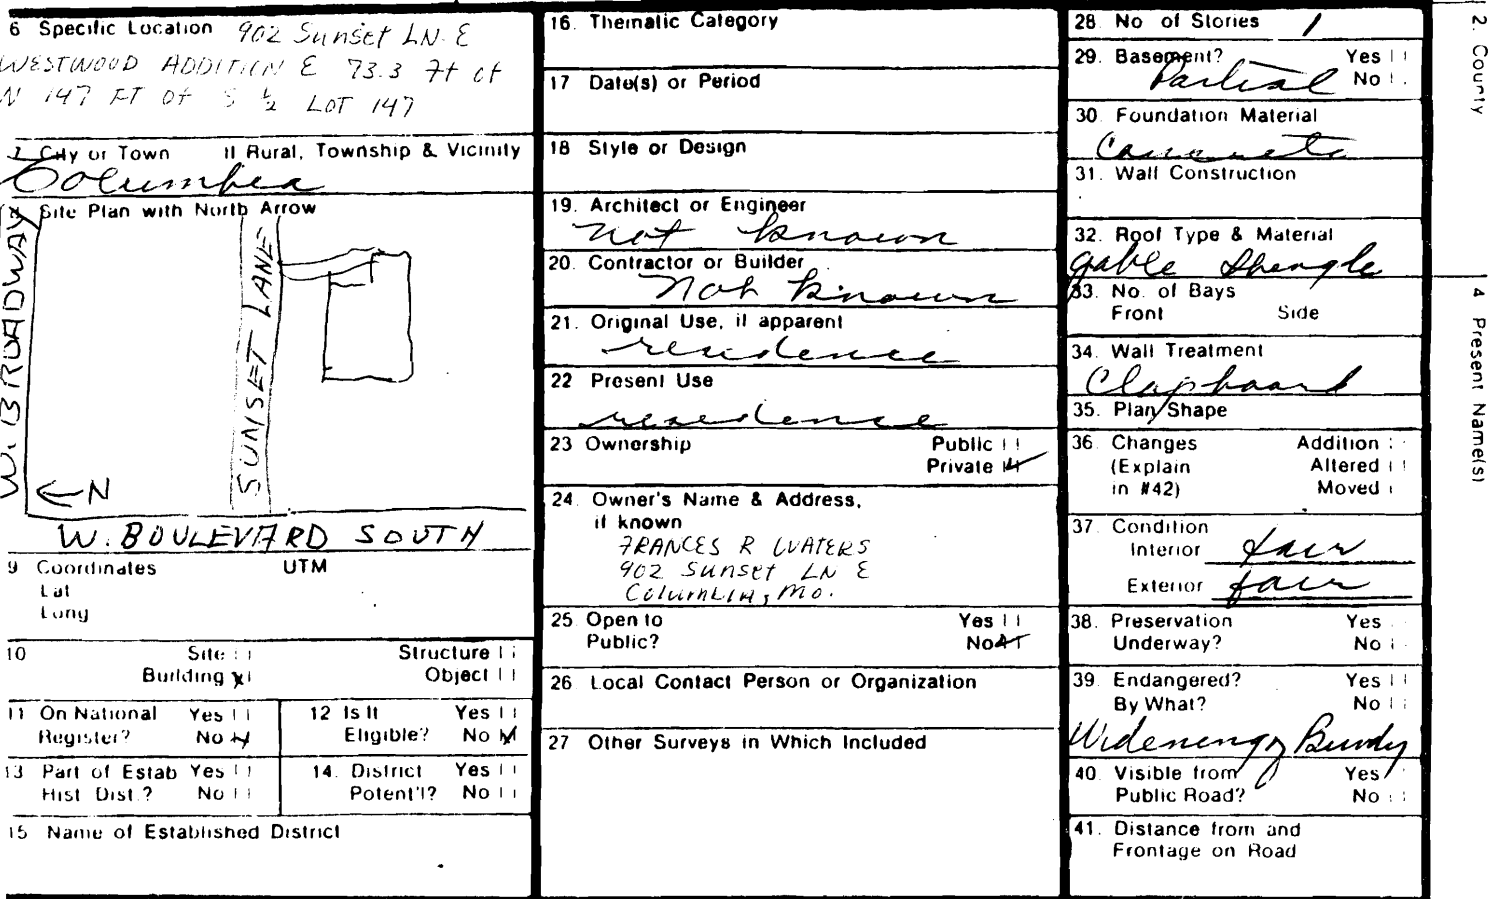 6 Specific Location 902 Sunset LN. E
WESTWOOD ADDITION E 73.3 Ft of
N 147 FT OF S ½ LOT 147
7 City or Town If Rural, Township & Vicinity
Columbia
8 Site Plan with North Arrow
W. BROADWAY
SUNSET LANE
←N
W. BOULEVARD SOUTH
9 Coordinates UTM
Lat
Long
10 Site Structure
Building x Object
11 On National Yes
Register? No
12 Is It Yes
Eligible? No
13 Part of Estab Yes
Hist Dist.? No
14. District Yes
Potent'l? No
15 Name of Established District
16. Thematic Category
17 Date(s) or Period
18 Style or Design
19. Architect or Engineer
not known
20. Contractor or Builder
Not known
21. Original Use, if apparent
residence
22 Present Use
residence
23 Ownership Public
Private
24. Owner's Name & Address,
if known
FRANCES R WATERS
902 Sunset LN E
Columbia, Mo.
25. Open to Yes
Public? No
26. Local Contact Person or Organization
27 Other Surveys in Which Included
28. No of Stories 1
29. Basement? Yes
Partial No
30. Foundation Material
Concrete
31. Wall Construction
32. Roof Type & Material
gable shingle
33. No. of Bays
Front Side
34. Wall Treatment
Clapboard
35. Plan Shape
36. Changes Addition
(Explain Altered
in #42) Moved
37. Condition
Interior fair
Exterior fair
38. Preservation Yes
Underway? No
39. Endangered? Yes
By What? No
Widening
40. Visible from Yes
Public Road? No
41. Distance from and
Frontage on Road
2. County
4 Present Name(s)